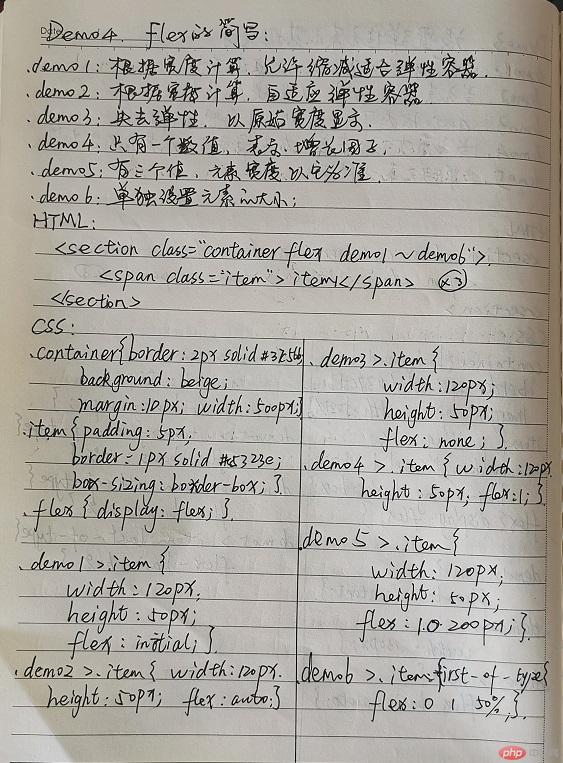 Demo4. flex的简写:
.demo1: 根据宽度计算, 允许缩减适合弹性容器.
.demo2: 根据宽度计算, 自适应弹性容器
.demo3: 失去弹性, 以原始宽度显示.
.demo4. 只有一个数值, 表示增长因子,
.demo5: 有三个值, 元素宽度以它为准.
.demo6: 单独设置元素的大小;
HTML:
<section class="container flex demo1 ~ demo6">.
<span class="item"> item1</span> ×3
</section>
CSS:
.container{border: 2px solid
background: beige;
margin: 10px; width: 500px;}
.item{padding: 5px,
border: 1px solid
box-sizing: border-box; }.
.flex { display: flex; }.
.demo1 >.item {
width: 120px,
height: 50px;
flex: initial; }.
.demo2 >.item{ width: 120px.
height: 50px; flex: auto;}
.demo3 >.item {
width: 120px;
height: 50px;
flex: none; }.
.demo4 >.item { width: 120px.
height: 50px, flex: 1; }.
.demo5 >.item{
width: 120px,
height: 50px;
flex: 1.0 200px; }.
.demo6 >.item:first-of-type{
flex: 0 1 50%,}.
php